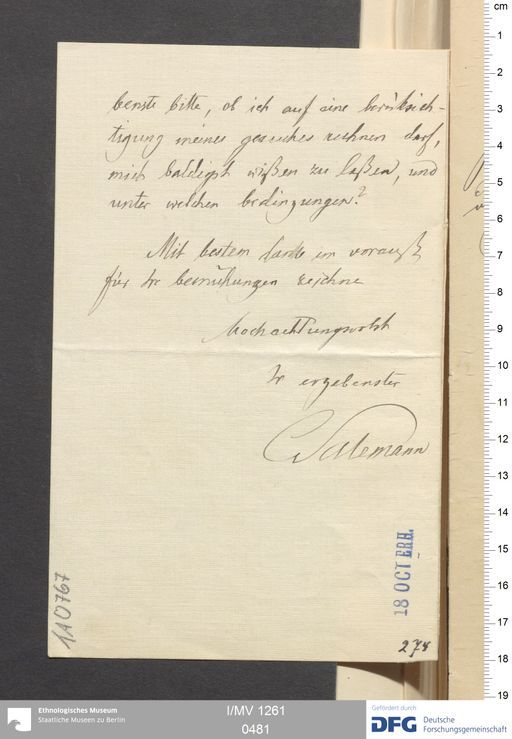 benste bitte, ob ich auf eine berücksich-
tigung meines gesuches rechnen darf,
mich baldigst wißen zu laßen, und
unter welchen bedingungen?
Mit bestem danke im vorauß
für Ihre bemühungen zeichne
Hochachtungsvollst
Ihr ergebenster
CSalemann
18 OCT ERH.
278
1A0767
cm
1
2
3
4
5
6
7
8
9
10
11
12
13
14
15
16
17
18
19
Ethnologisches Museum
Staatliche Museen zu Berlin
I/MV 1261
0481
Gefördert durch
DFG Deutsche
Forschungsgemeinschaft